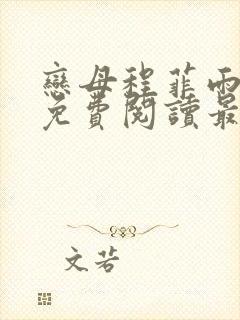 戀母程菲雨
免費閱讀最
文若